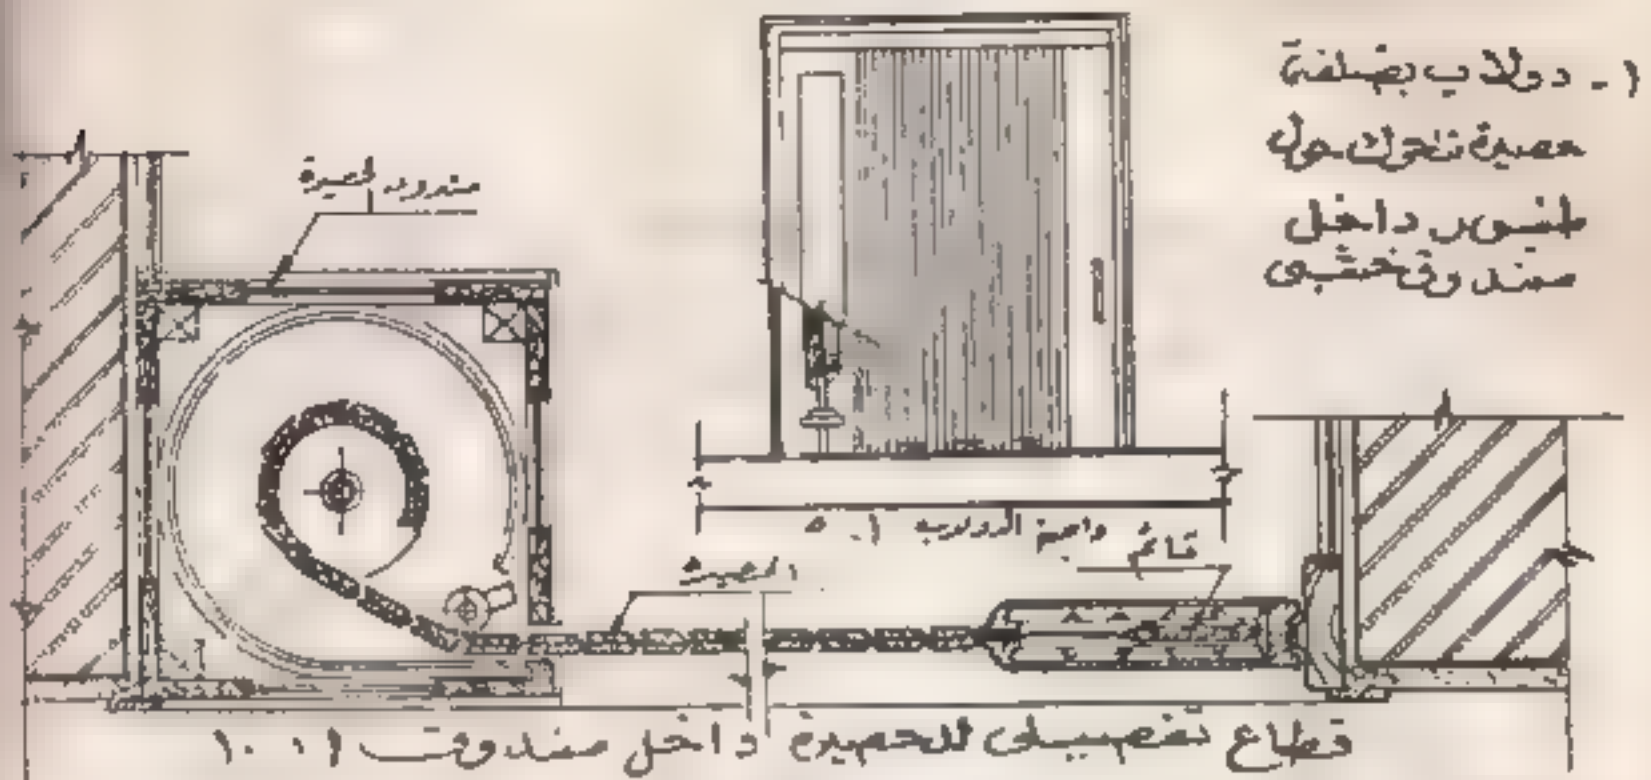 ١ - دولاب بضلفة
حصيرة تتحرك حول
طنبور داخل
صندوق خشبى
صندوق الحصيرة
واجهة الدولاب ١ : ٥٠
قائم
الحصيرة
قطاع تفصيلى للحصيرة داخل صندوق ١ : ١٠